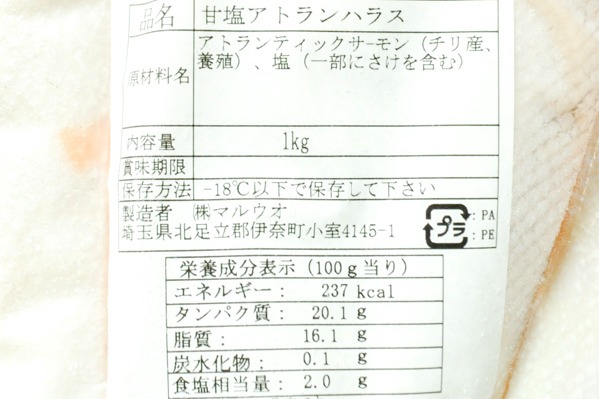 品名 甘塩アトランハラス
原材料名 アトランティックサーモン（チリ産、
養殖）、塩（一部にさけを含む）
内容量 1kg
賞味期限
保存方法 -18℃以下で保存して下さい
製造者 ㈱マルウオ
埼玉県北足立郡伊奈町小室4145-1
プラ :PA
:PE
栄養成分表示（100g当り）
エネルギー： 237 kcal
タンパク質： 20.1 g
脂質： 16.1 g
炭水化物： 0.1 g
食塩相当量： 2.0 g